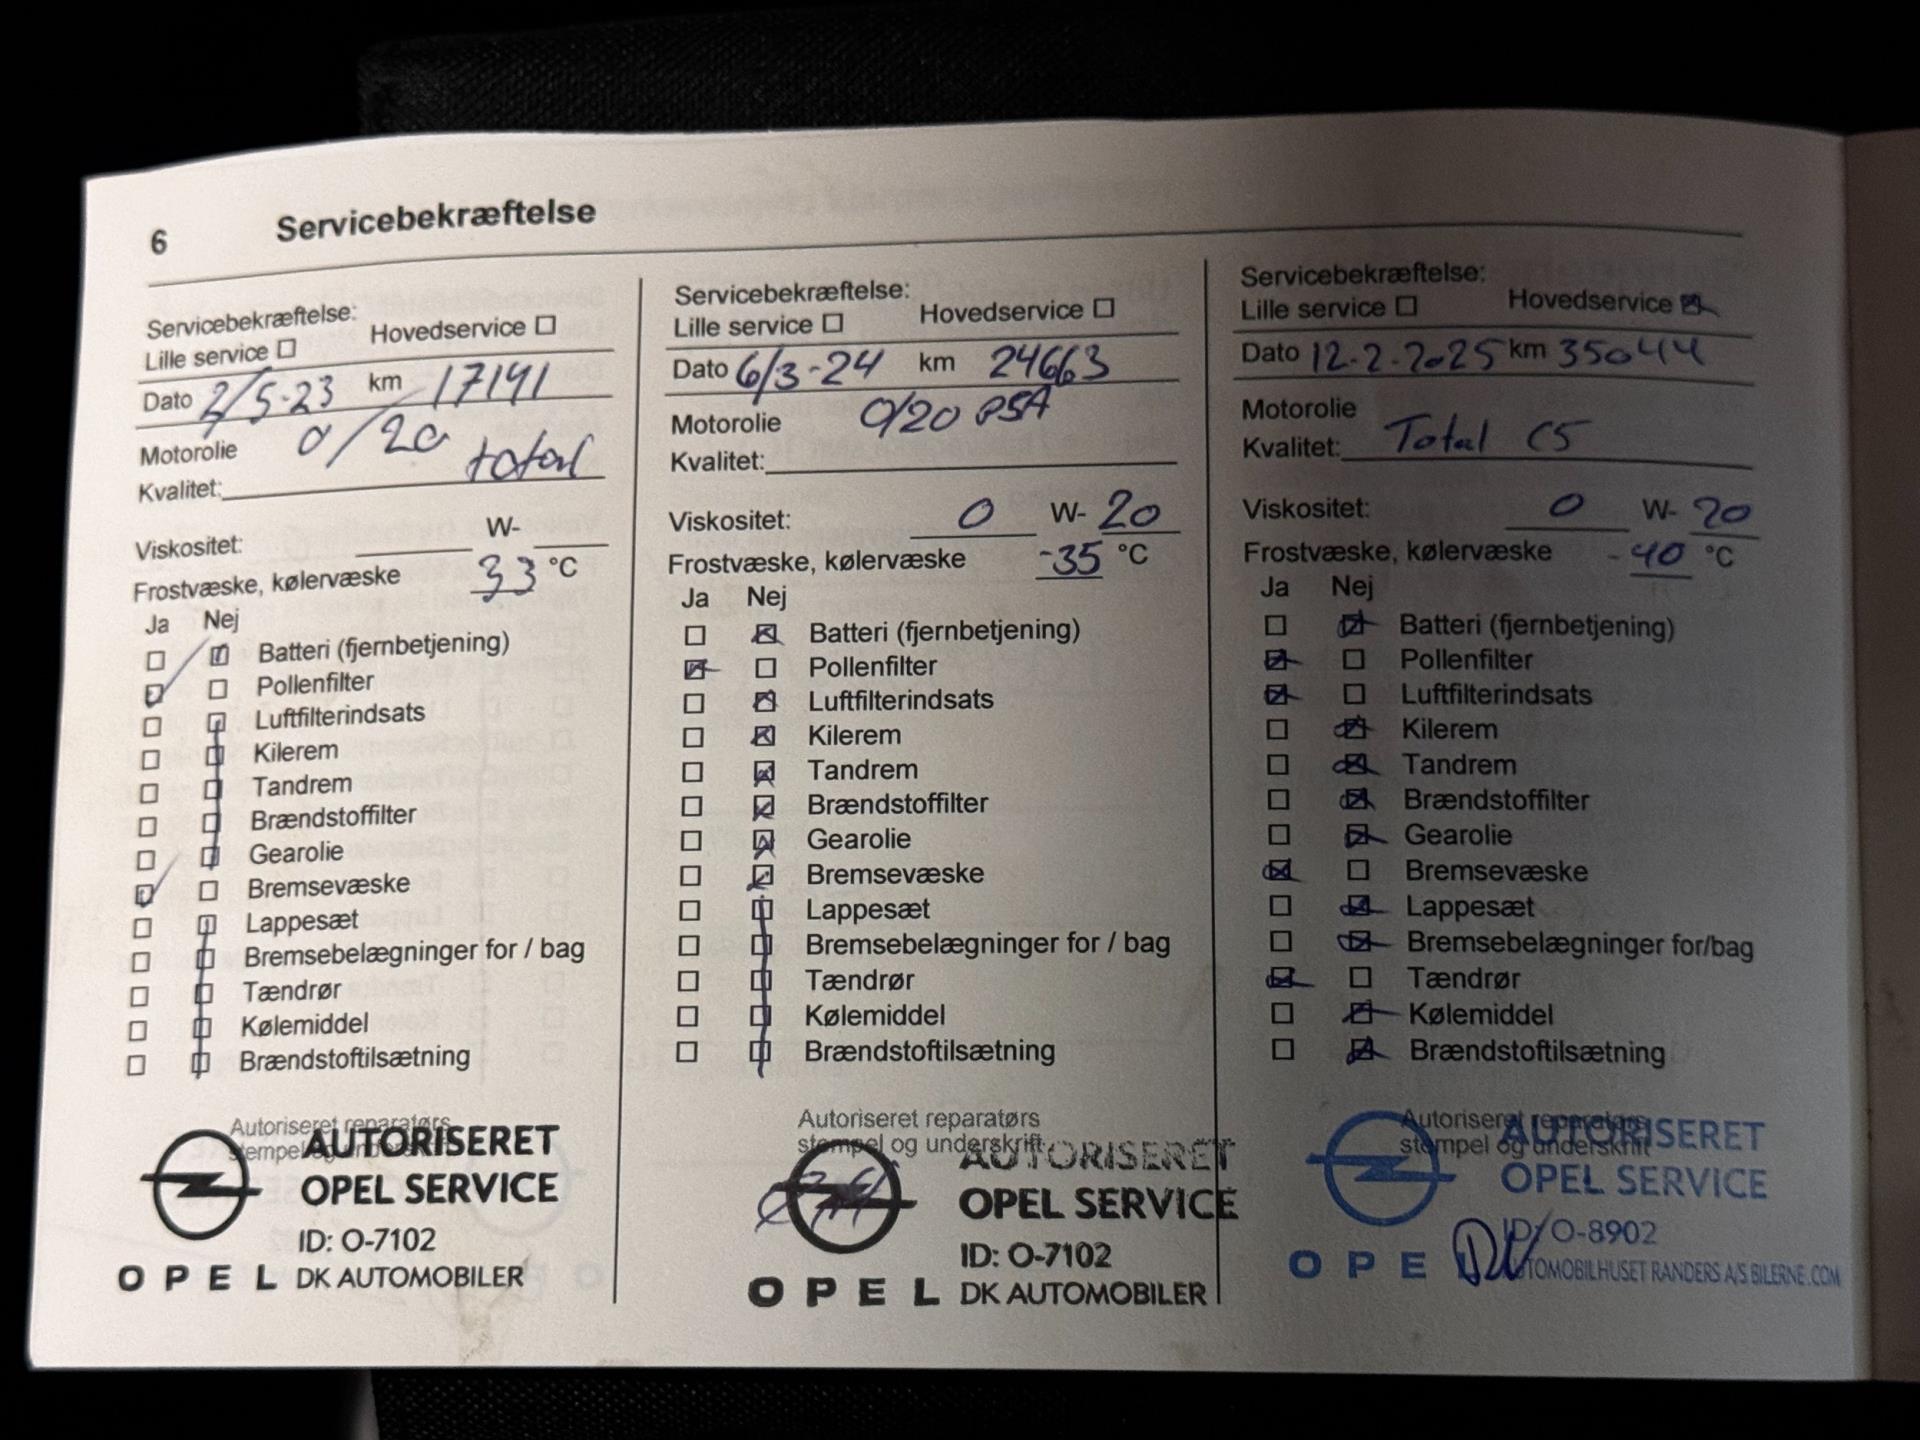 6 Servicebekræftelse
Servicebekræftelse:
Lille service ☐ Hovedservice ☐
Dato 2/5-23 km 17141
Motorolie 0/20 total
Kvalitet:
Viskositet: W-
Frostvæske, kølervæske 33 °C
Ja Nej
Batteri (fjernbetjening)
Pollenfilter
Luftfilterindsats
Kilerem
Tandrem
Brændstoffilter
Gearolie
Bremsevæske
Lappesæt
Bremsebelægninger for / bag
Tændrør
Kølemiddel
Brændstoftilsætning
Autoriseret reparatørs
stempel og underskrift
AUTORISERET
OPEL SERVICE
ID: O-7102
OPEL DK AUTOMOBILER
Servicebekræftelse:
Lille service ☐ Hovedservice ☐
Dato 6/3-24 km 24663
Motorolie 0/20 PSA
Kvalitet:
Viskositet: 0 W- 20
Frostvæske, kølervæske -35 °C
Ja Nej
Batteri (fjernbetjening)
Pollenfilter
Luftfilterindsats
Kilerem
Tandrem
Brændstoffilter
Gearolie
Bremsevæske
Lappesæt
Bremsebelægninger for / bag
Tændrør
Kølemiddel
Brændstoftilsætning
Autoriseret reparatørs
stempel og underskrift
AUTORISERET
OPEL SERVICE
ID: O-7102
OPEL DK AUTOMOBILER
Servicebekræftelse:
Lille service ☐ Hovedservice ☒
Dato 12-2-2025 km 35044
Motorolie
Kvalitet: Total C5
Viskositet: 0 W- 20
Frostvæske, kølervæske -40 °C
Ja Nej
Batteri (fjernbetjening)
Pollenfilter
Luftfilterindsats
Kilerem
Tandrem
Brændstoffilter
Gearolie
Bremsevæske
Lappesæt
Bremsebelægninger for/bag
Tændrør
Kølemiddel
Brændstoftilsætning
Autoriseret reparatørs
stempel og underskrift
AUTORISERET
OPEL SERVICE
ID: O-8902
OPEL AUTOMOBILHUSET RANDERS A/S BILERNE.COM